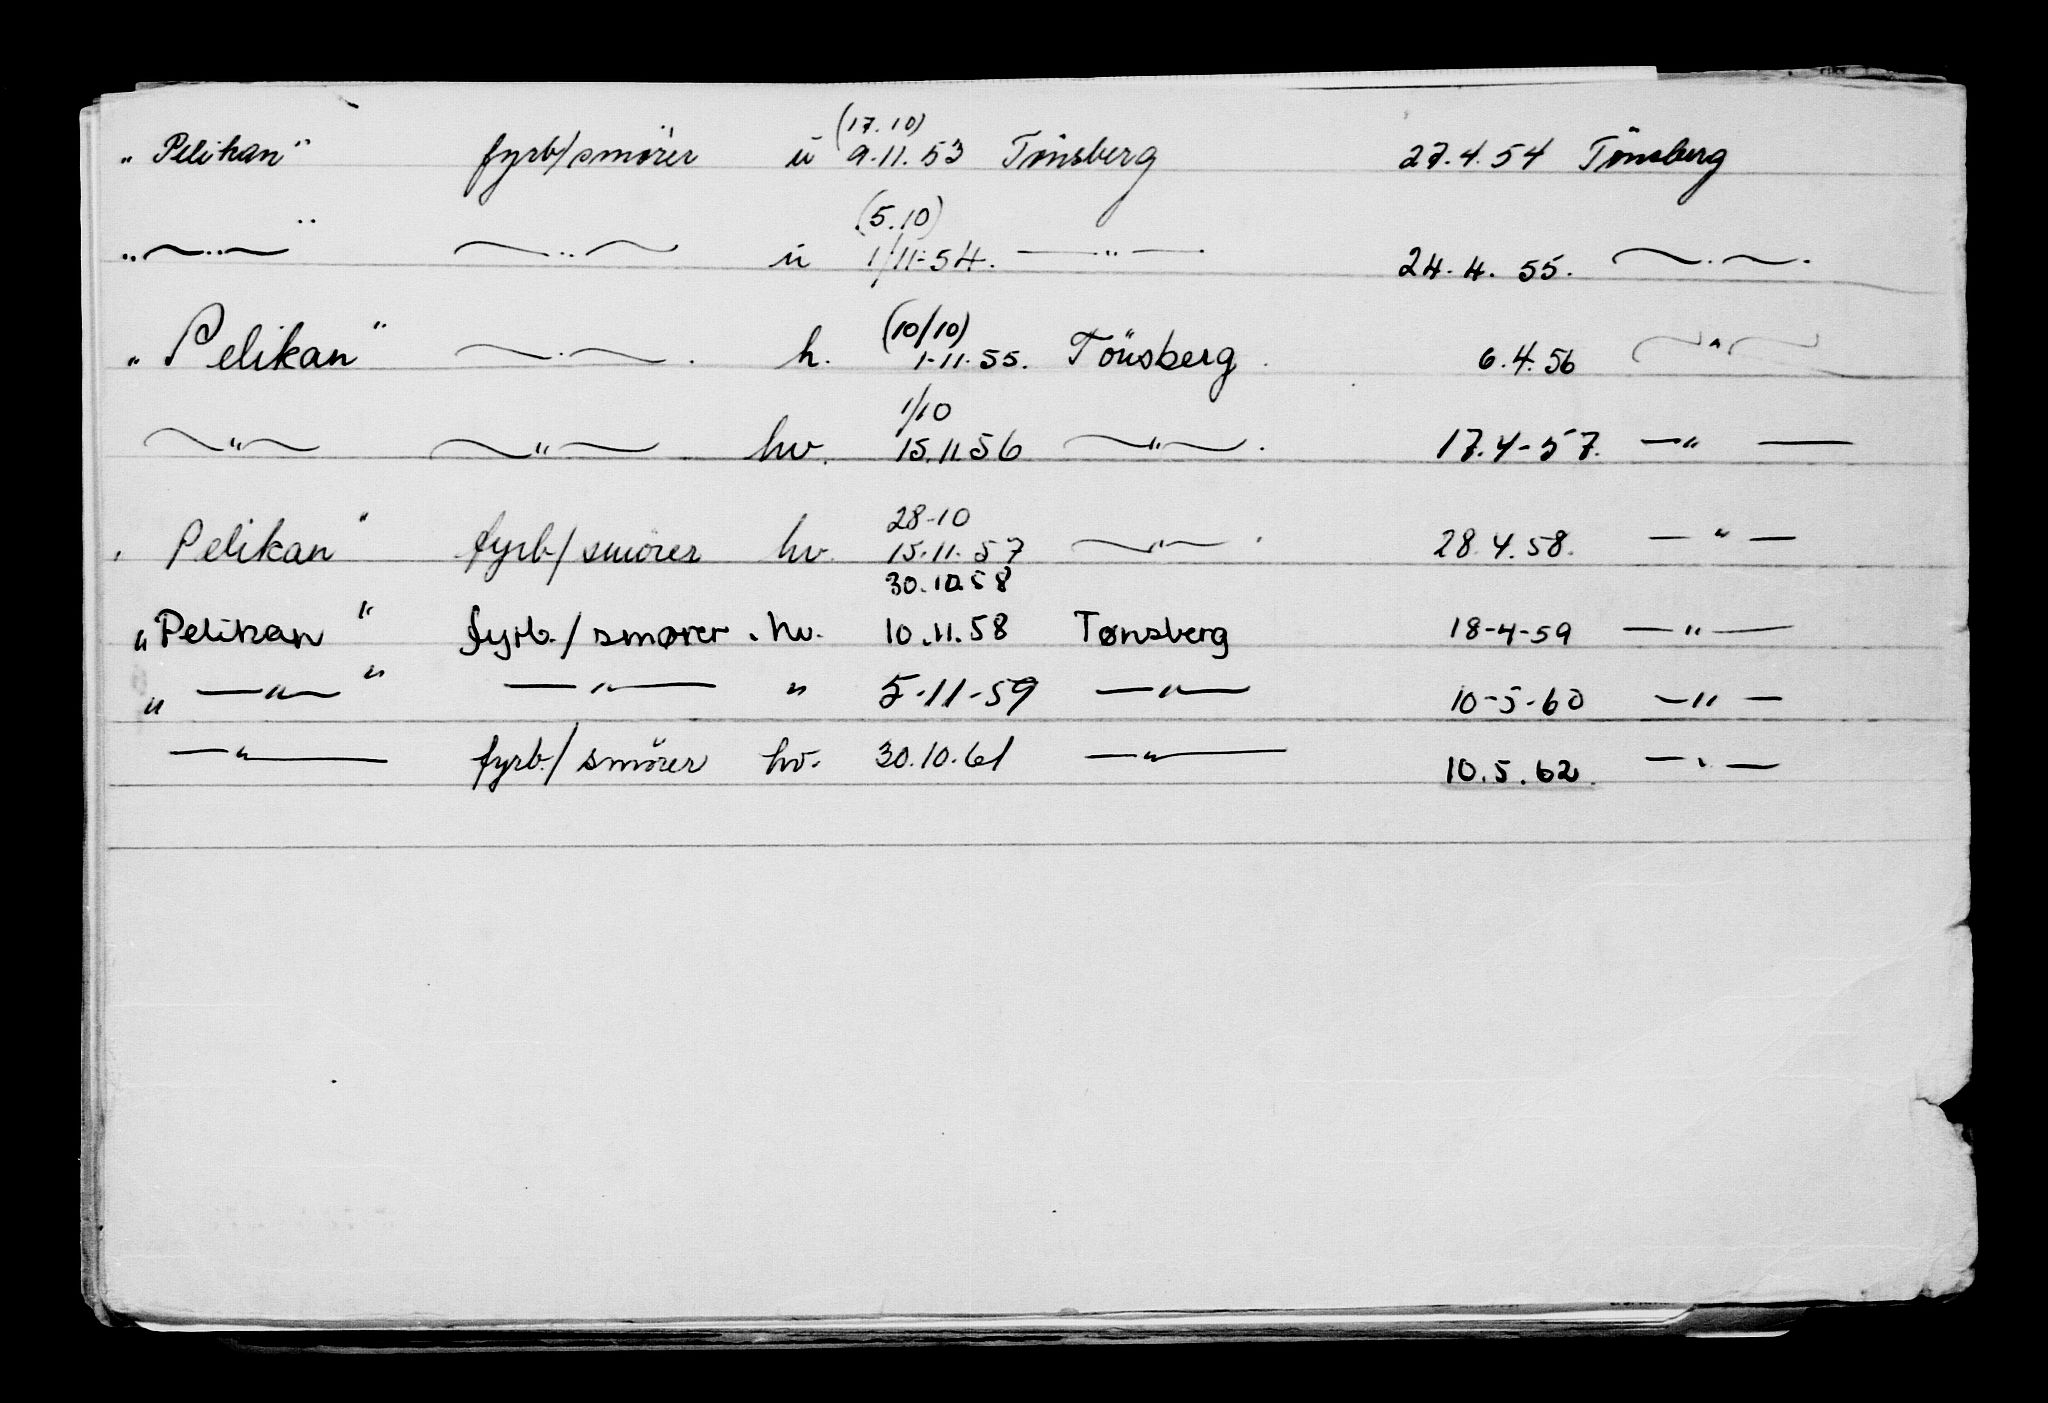 (17.10)
„Pelikan" fyrb/smörer u 9.11.53 Tönsberg 27.4.54 Tönsberg
(5.10)
„—„—" —„— u 1/11-54. —„— 24.4.55. —„—
(10/10)
„Pelikan" —„— h. 1.11.55. Tönsberg 6.4.56 —„—
1/10
—„— —„— hv. 15.11.56 —„— 17.4-57. —„—
28-10
Pelikan" fyrb/smörer hv. 15.11.57 —„— 28.4.58. —„—
30.10.58
„Pelikan" fyrb./smører hv. 10.11.58 Tønsberg 18-4-59 —„—
„—„—" —„— " 5-11-59 —„— 10-5-60 —„—
—„— fyrb./smörer hv. 30.10.61 —„— 10.5.62. —„—